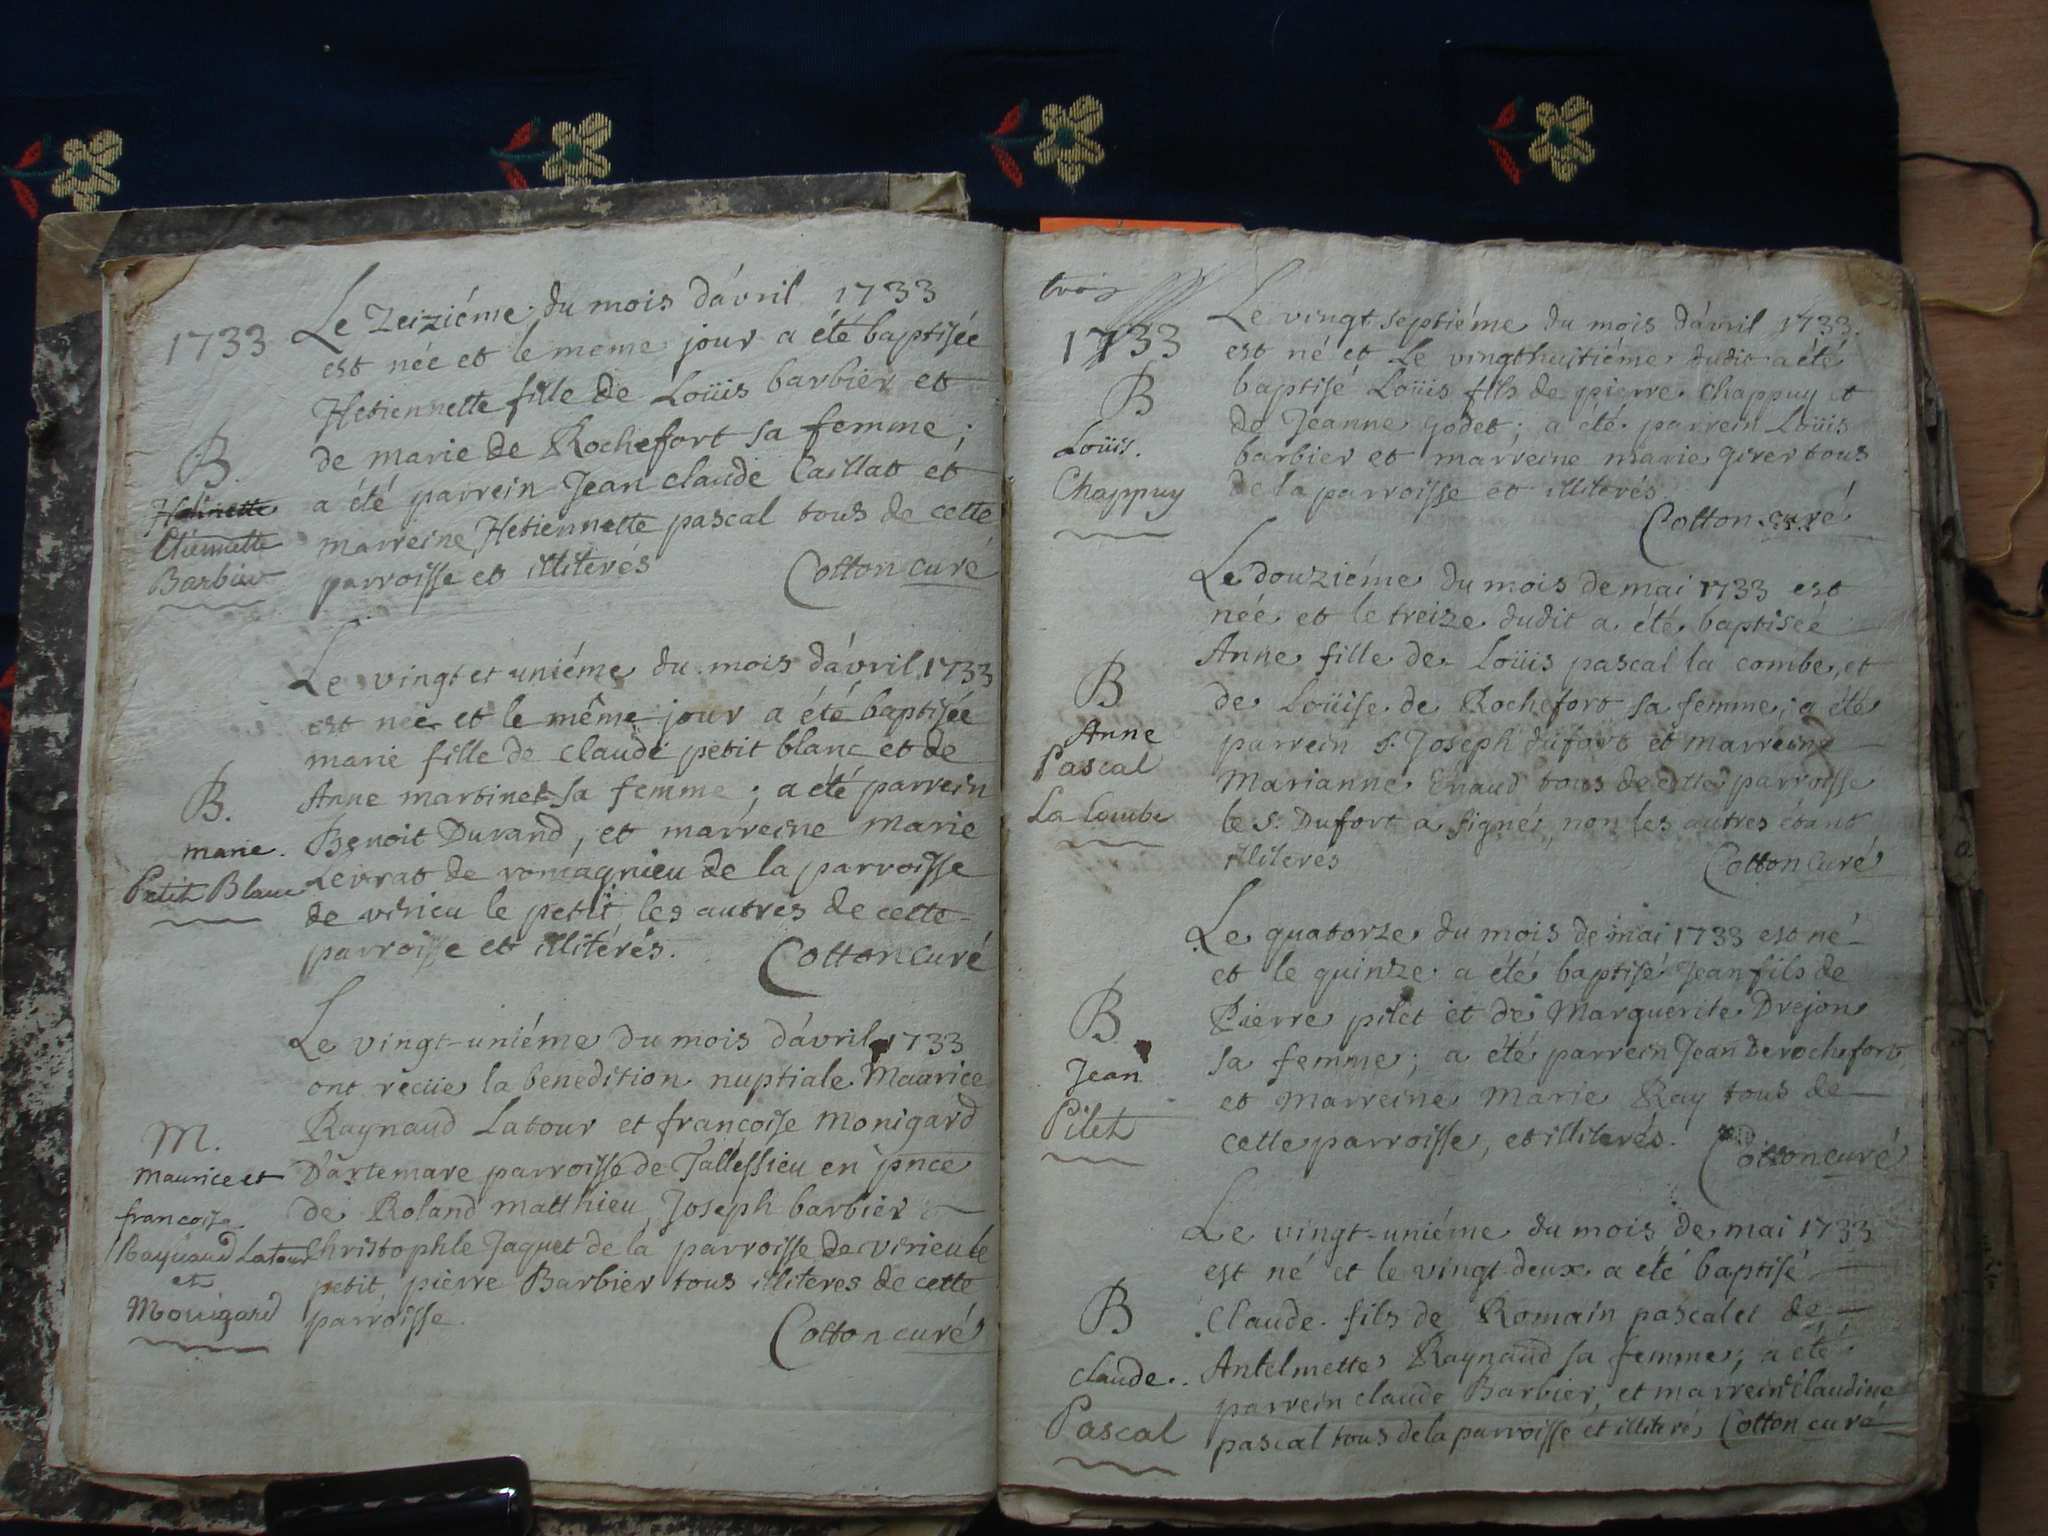 1733
Le Zeiziéme du mois d'avril 1733
est née et le meme jour a été baptisée
Hetiennette fille de Loüis barbier et
de marie de Rochefort sa femme;
a été parrein Jean claude Caillat et
marreine Hetiennette pascal tous de cette
parroisse et illiterés Cotton curé
B.
Etiennette
Barbier
Le vingt et uniéme du mois d'avril 1733
est née et le même jour a été baptisée
marie fille de claude petit blanc et de
Anne martinet sa femme; a été parrein
Benoit Durand, et marreine marie
Levrat de romagnieu de la parroisse
de virieu le petit, les autres de cette
parroisse et illitérés. Cotton Curé
B.
marie.
Petit Blanc
Le vingt-uniéme du mois d'avril 1733
ont recüe la benedition nuptiale Maurice
Raynaud Latour et françoise Monigard
D'artemare parroisse de Talessieu en pnce
de Roland matthieu, Joseph barbier
Christophle Jaquet de la parroisse de virieu le
petit, pierre Barbier tous illiteres de cette
parroisse.
Cotton curé
M.
Maurice et
françoise
Raynaud Latour
et
Monigard
trois
1733
Le vingt septiéme du mois d'avril 1733.
est né et Le vingthuitiéme dudit a été
baptisé Loüis fils de pierre Chappuy et
de Jeanne godet; a été parrein Loüis
barbier et marreine marie girer tous
de la parroisse et illiterés
Cotton curé
B
Loüis.
Chappuy
Le douziéme du mois de mai 1733 est
née et le treize dudit a été baptiseé
Anne fille de Loüis pascal la combe, et
de Loüise de Rochefort sa femme; a été
parrein s. Joseph dufort et marreine
Marianne Enaud tous de cette parroisse
le s. Dufort a signé, non les autres étant
illiteres Cotton Curé
B
Anne
Pascal
La Combe
Le quatorze du mois de mai 1733 est né
et le quinze a été baptisé Jean fils de
Pierre pilet et de Marguerite Drejon
sa femme; a été parrein Jean Derochefort
et Marreine Marie Ray tous de
cette parroisse, et illiterés. Cotton curé
B
Jean
Pilet
Le vingt-uniéme du mois de mai 1733
est né et le vingt deux a été baptisé
Claude fils de Romain pascal et de
Antelmette Raynaud sa femme; a été
parrein claude Barbier, et marrein claudine
pascal tous de la parroisse et illiterés Cotton curé
B
Claude.
Pascal